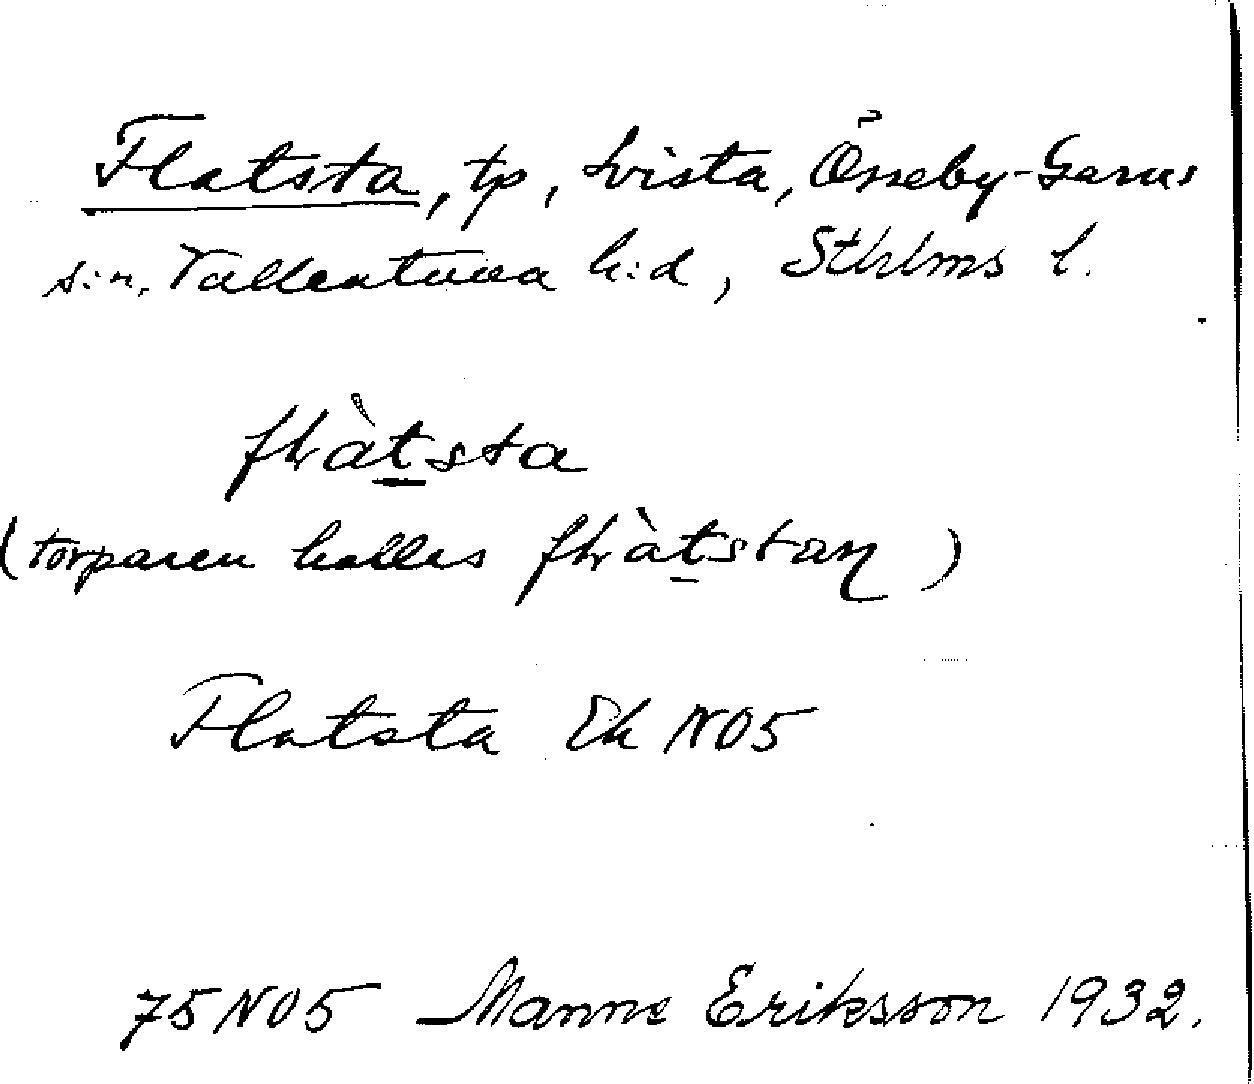 Flatsta, tp, Lvista, Össeby-Garns
s:n, Vallentuna h:d, Sthlms l.
flàtsta
(torparen kallas flàtstan)
Flatsta Ek NO5
75 NO5 Manne Eriksson 1932.